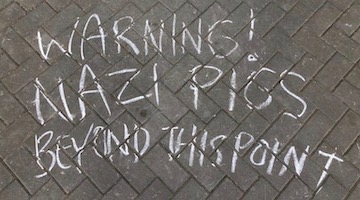 WARNING!
NAZI PIGS
BEYOND THIS POINT